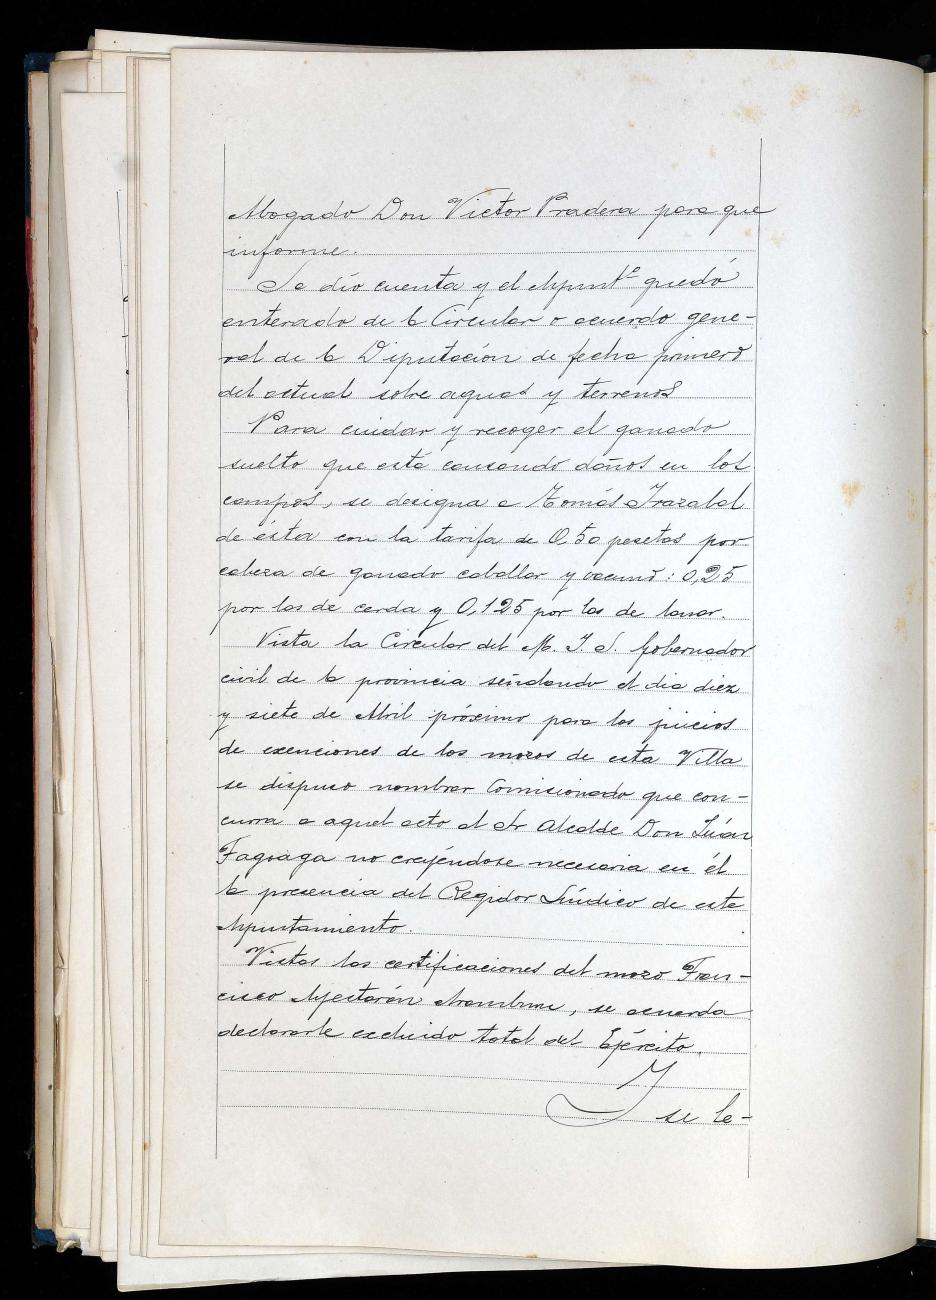 Abogado Don Victor Pradera para que
informe.
Se dió cuenta y el Ayunt.º quedó
enterado de la Circular o acuerdo gene-
ral de la Diputación de fecha primero
del actual sobre aguas y terrenos
Para cuidar y recoger el ganado
suelto que está causando daños en los
campos, se designa a Tomás Irazabal
de ésta con la tarifa de 0,50 pesetas por
cabeza de ganado caballar y vacuno: 0,25
por los de cerda y 0,125 por los de lanar.
Vista la Circular del M. I. S. Gobernador
civil de la provincia señalando el dia diez
y siete de Abril próximo para los juicios
de exenciones de los mozos de esta Villa
se dispuso nombrar Comisionado que con-
curra a aquel acto al Sr Alcalde Don Juán
Fagoaga no creyéndose necesaria en él
la presencia del Regidor Síndico de este
Ayuntamiento.
Vistas las certificaciones del mozo Fran-
cisco Apestarán, se acuerda
declararle excluido total del Ejército.
Y
se le-